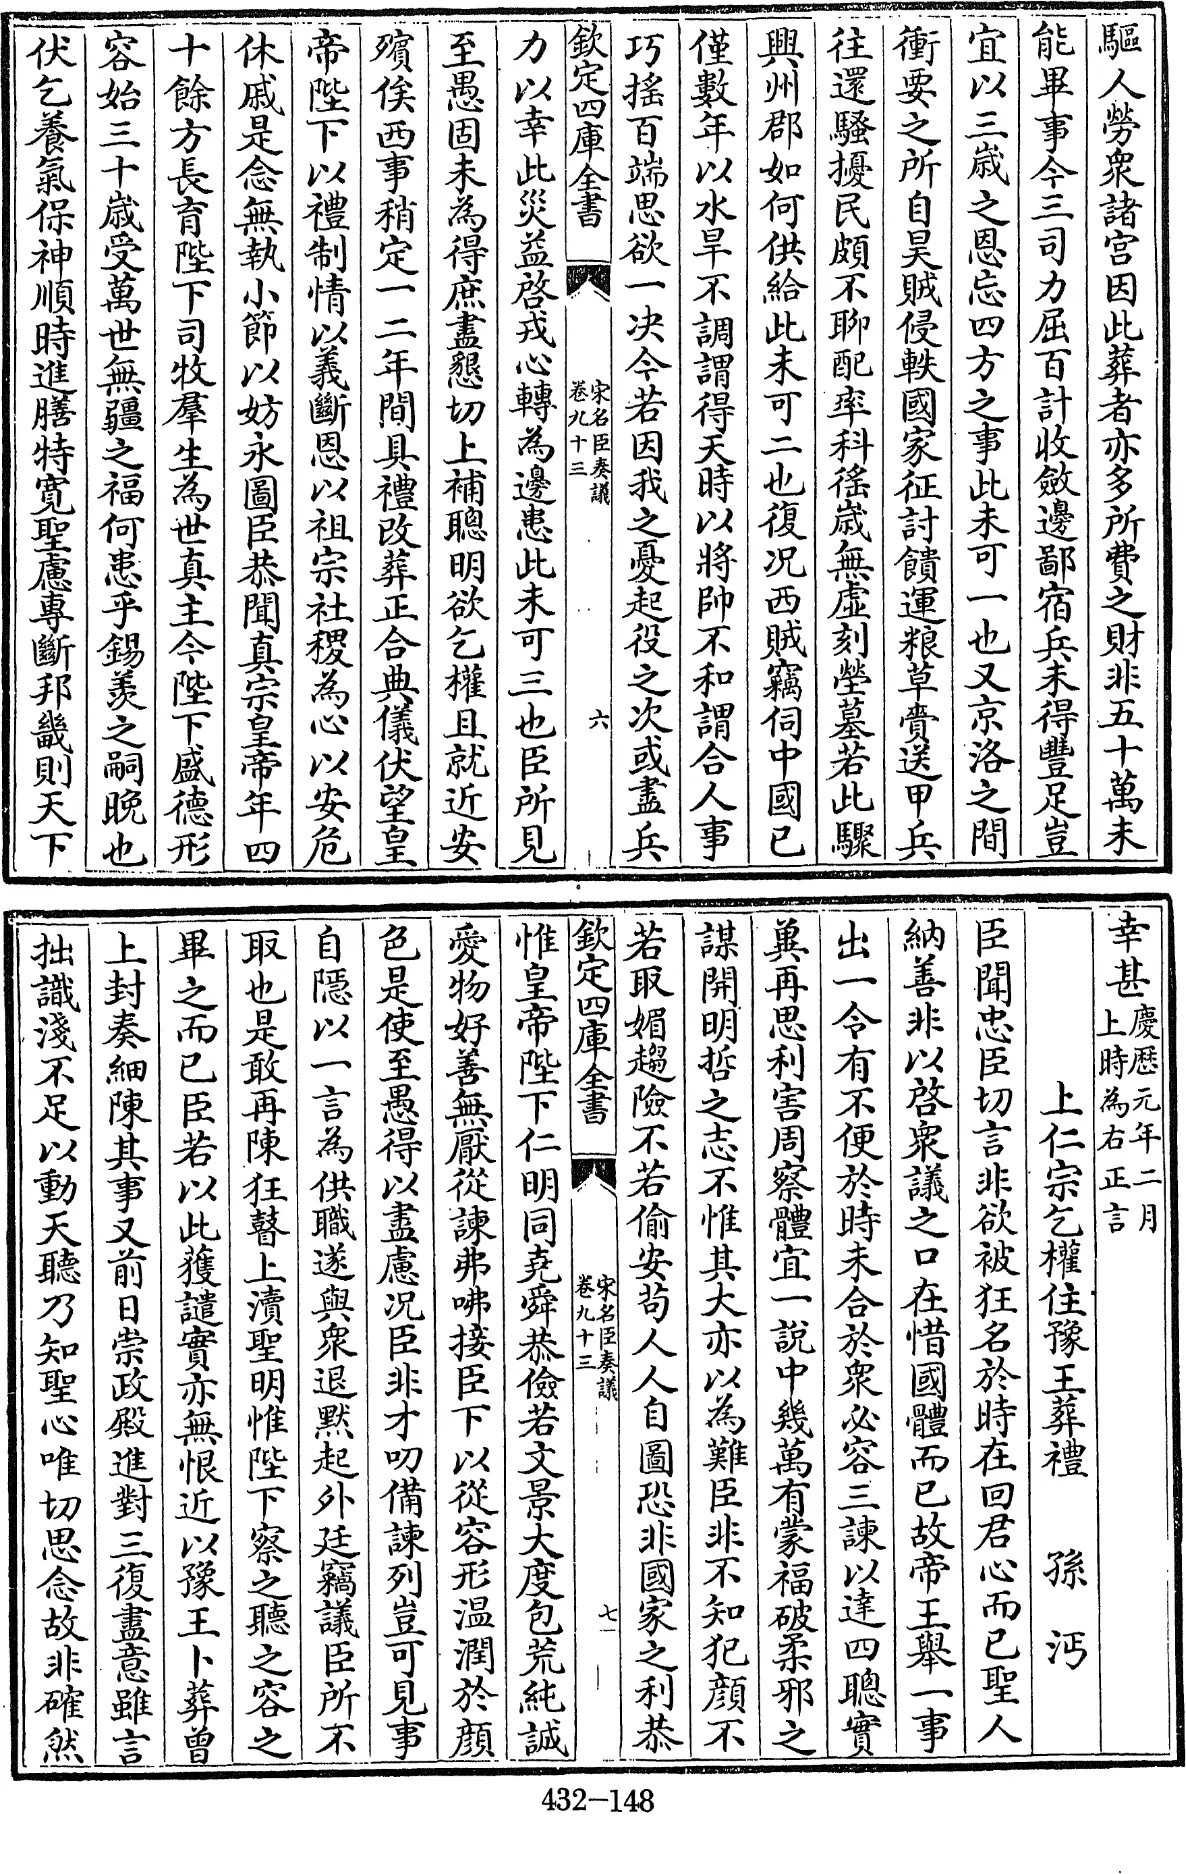 驅人勞衆諸宫因此葬者亦多所費之財非五十萬未
能畢事今三司力屈百計收斂邊鄙宿兵未得豐足豈
宜以三歲之恩忘四方之事此未可一也又京洛之間
衝要之所自昊賊侵軼國家征討饋運粮草賫送甲兵
往還騷擾民頗不聊配率科徭歲無虚刻塋墓若此驟
興州郡如何供給此未可二也復況西賊竊伺中國已
僅數年以水旱不調謂得天時以將帥不和謂合人事
巧搖百端思欲一决今若因我之憂起役之次或盡兵
欽定四庫全書
宋名臣奏議
卷九十三
六
力以幸此災益啓戎心轉為邊患此未可三也臣所見
至愚固未為得庶盡懇切上補聰明欲乞權且就近安
殯俟西事稍定一二年間具禮改葬正合典儀伏望皇
帝陛下以禮制情以義斷恩以祖宗社稷為心以安危
休戚是念無執小節以妨永圖臣恭聞真宗皇帝年四
十餘方長育陛下司牧羣生為世真主今陛下盛德形
容始三十歲受萬世無疆之福何患乎錫羨之嗣晚也
伏乞養氣保神順時進膳特寛聖慮專斷邦畿則天下
幸甚慶歷元年二月
上時為右正言
上仁宗乞權住豫王葬禮 孫沔
臣聞忠臣切言非欲被狂名於時在回君心而已聖人
納善非以啓衆議之口在惜國體而已故帝王舉一事
出一令有不便於時未合於衆必容三諫以達四聰實
兾再思利害周察體宜一說中幾萬有蒙福破柔邪之
謀開明哲之志不惟其大亦以為難臣非不知犯顔不
若取媚趨險不若偷安苟人人自圖恐非國家之利恭
欽定四庫全書
宋名臣奏議
卷九十三
七
惟皇帝陛下仁明同堯舜恭儉若文景大度包荒純誠
愛物好善無厭從諫弗咈接臣下以從容形温潤於顔
色是使至愚得以盡慮况臣非才叨備諫列豈可見事
自隱以一言為供職遂與衆退默起外廷竊議臣所不
取也是敢再陳狂瞽上瀆聖明惟陛下察之聽之容之
畢之而已臣若以此獲譴實亦無恨近以豫王卜葬曾
上封奏細陳其事又前日崇政殿進對三復盡意雖言
拙識淺不足以動天聽乃知聖心唯切思念故非確然
432-148